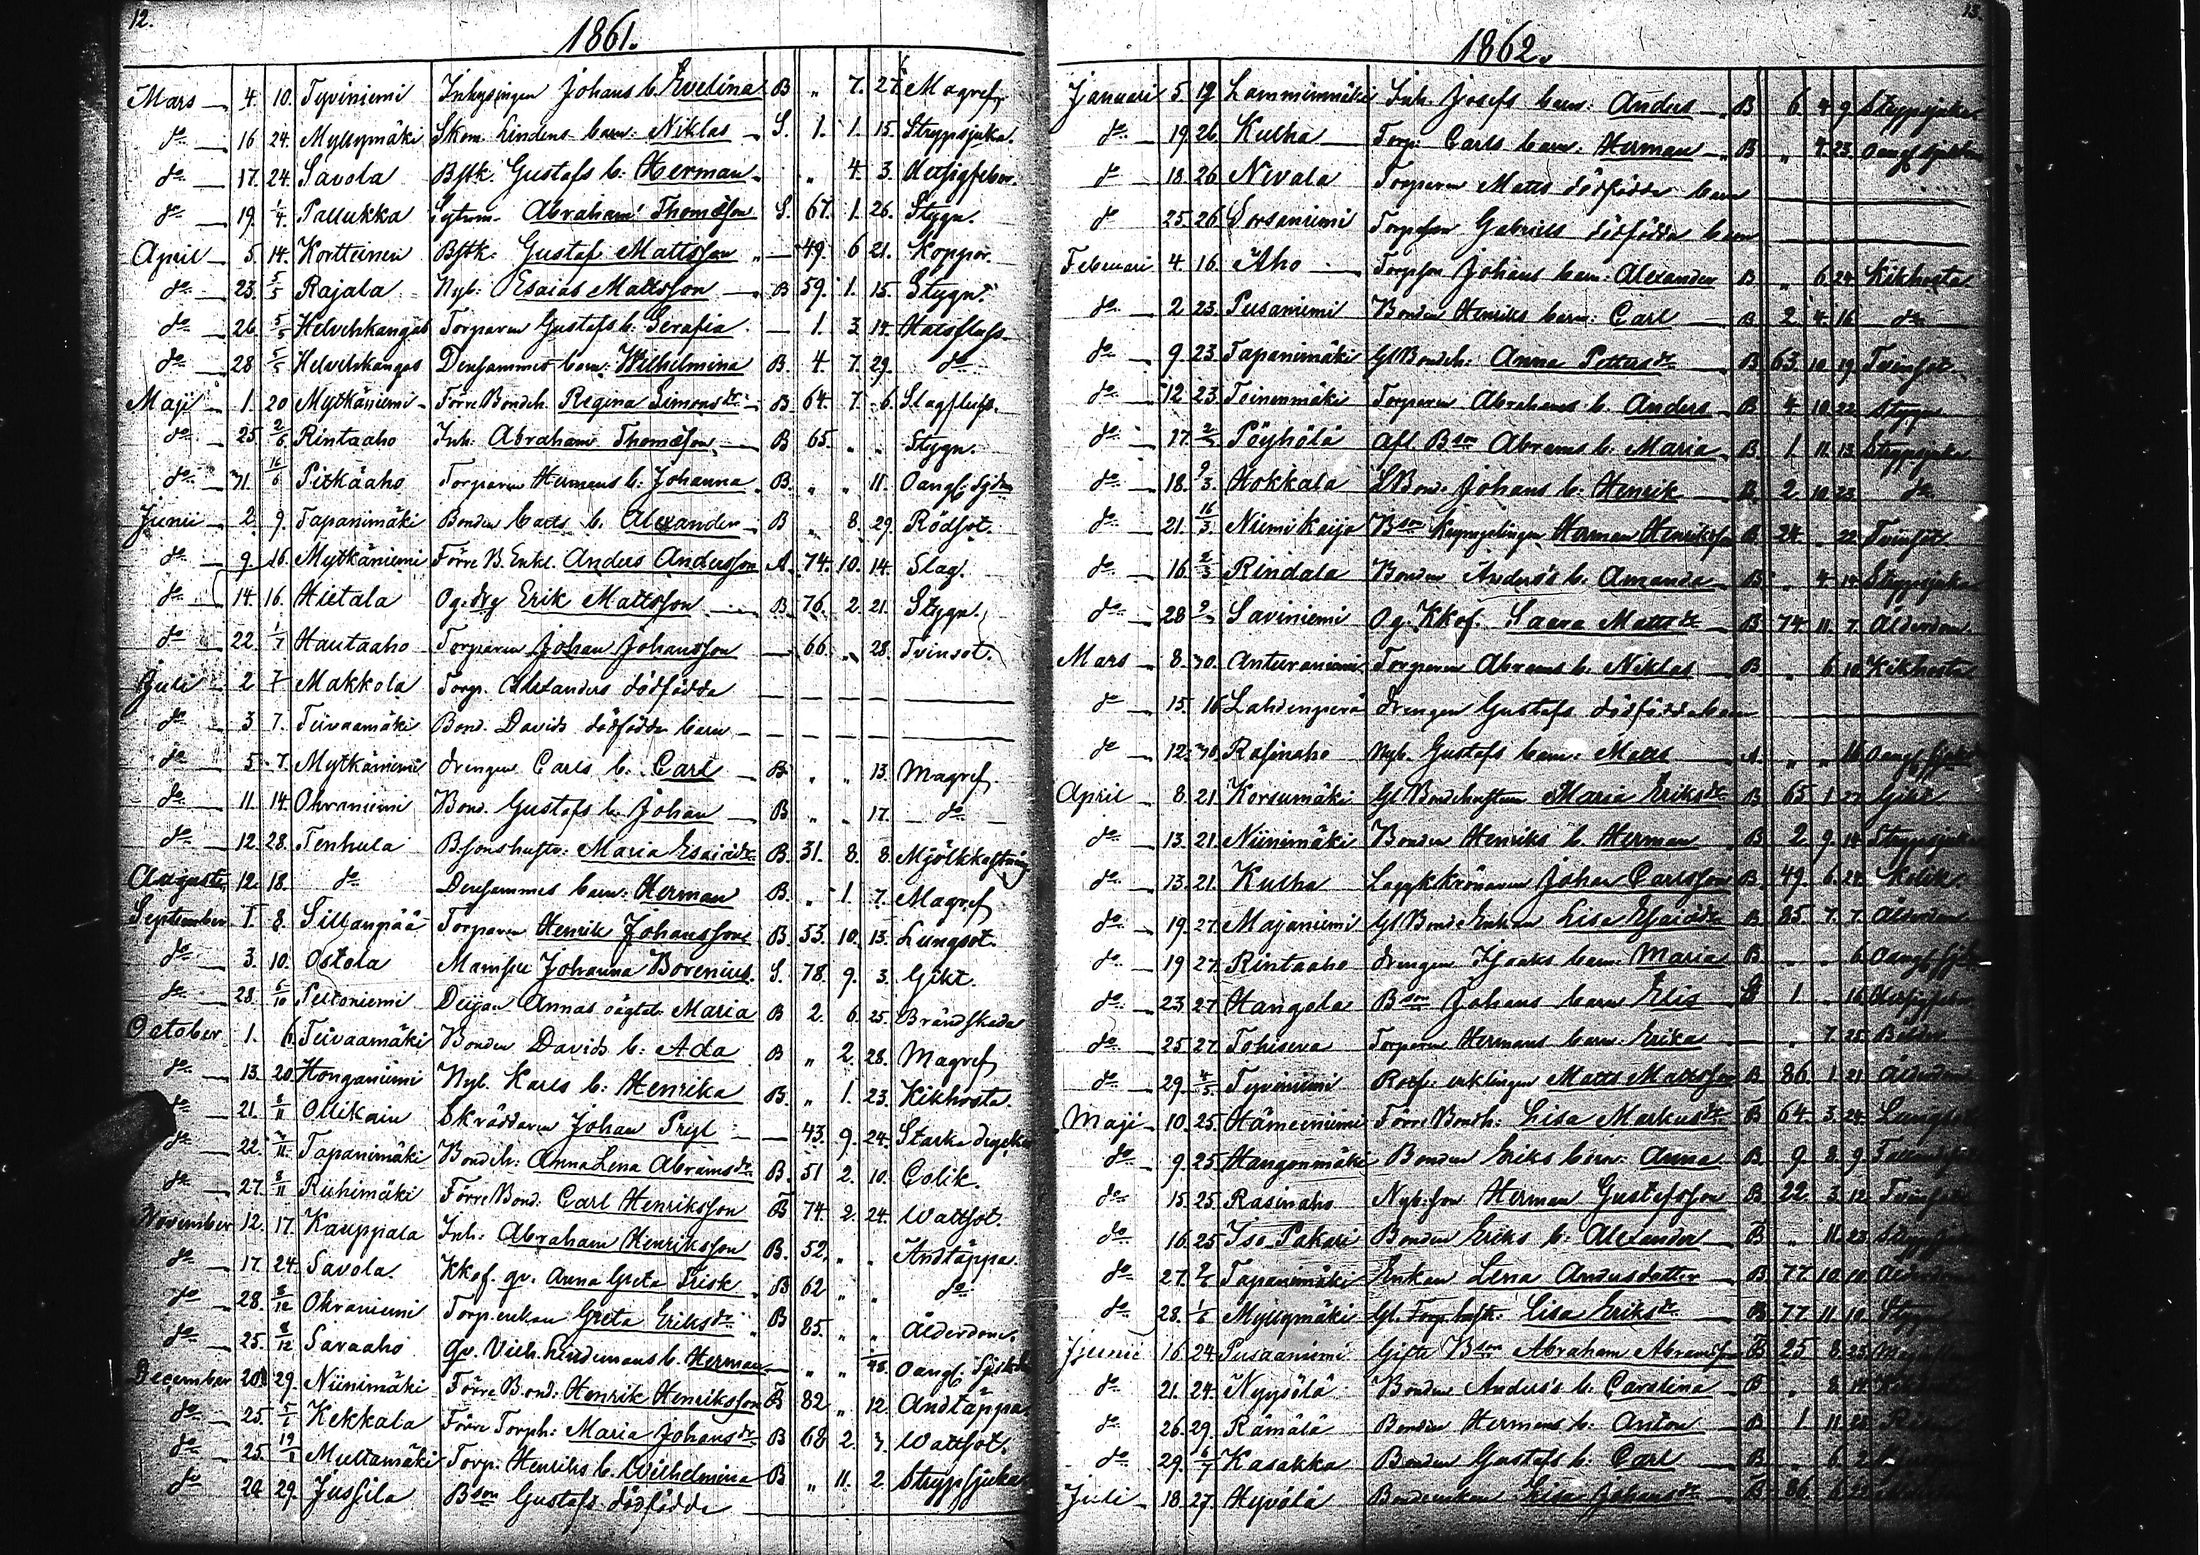 12.
1861.
Mars 4. 10. Tyviniemi Inhysingen Johans b. Evelina B „ 7. 27. Magref
do 16 24. Myllymäki Skom. Lindens barn: Niklas S. 1. 1. 15. Strypsjuka.
do 17. 24. Savola Bstk. Gustafs b. Herman „ 4. 3. Hetsigfeber.
do 19. 1/4 Pallukka Sytnm. Abraham Thomasson S. 67. 1. 26. Stygn.
April 5. 14. Kortteinen Bstk. Gustaf Mattsson „ 49. 6 21. Koppor.
do 23. 5/5 Rajala Nyb. Esaias Mattsson B 59. 1. 15. Stygn.
do 26. 5/5 Helvetskangas Torparen Gustafs b. Serafia 1. 3 14. Halsfluss
do 28 5/5 Helvetskangas Densammes barn: Wilhelmina B. 4. 7. 29. do
Maji 1. 20 Mytkäniemi Förre Bondeh. Regina Simonsdr B 64. 7 6. Slagfluss.
do 25. 2/6 Rintaaho Inh. Abraham Thomasson B 65. „ „ Stygn.
do 31 16/6 Pitkäaho Torparen Hermans b. Johanna B. „ „ 11. Oangf. Sjdm
Junii 2. 9. Tapanimäki Bonden Carls b. Alexander B „ 8. 29. Rödsot.
do 9 16. Mytkäniemi Förre B. Enkl. Anders Andersson A. 74. 10. 14. Slag.
do 14. 16. Hietala Og. drg Erik Mattsson B. 76. 2. 21. Stygn.
do 22. 1/7 Hautaaho Torparen Johan Johansson 66. „ 28. Tvinsot.
Juli 2 7 Makkola Torp. Alexanders dödfödda
do 3 7. Teivaamäki Bond. Davids dödfödda barn
do 5 7. Mytkäniemi drengen Carls b. Carl B „ „ 13. Magref
do 11. 14. Ohraniemi Bond. Gustafs b. Johan B „ „ 17. do
do 12. 28. Tenhula Bsonshustr. Maria Esaiædr B. 31. 8. 8. Mjölkkastning
Augusti 12. 18. do Densammes barn: Herman B. „ 1. 7. Magref
September 1. 8. Sillanpää Torparen Henrik Johansson B 53. 10. 13. Lungsot.
do 3. 10. Ostola Mamsell Johanna Borenius S. 78. 9. 3. Gikt.
do 28. 6/10 Peltoniemi Deijan Annas oägta: Maria B 2. 6. 25. Brändskada
October 1. 6. Teivaamäki Bonden Davids b. Ada B „ 2. 28. Magref
do 13. 20 Honganiemi Nyb. Karls b. Henrika B. „ 1. 23. Kikhosta.
do 21. 3/11 Ollikain Skräddaren Johan Pryl 43. 9. 24. Starka drycker
do 22. 3/11 Tapanimäki Bondeh. Anna Lena Abramsdr B. 51 2. 10. Colik.
do 27. 3/11 Riihimäki Förre Bond. Carl Henriksson B 74. 2. 24. Wattsot.
November 12. 17. Kauppala Inh. Abraham Henriksson B. 52. „ „ Andtäppa.
do 17. 24. Savola Kkof. qv. Anna Greta Frisk B 62 „ „ do
do 28. 8/12 Ohraniemi Torp. enkan Greta Eriksdr B 85. „ „ Ålderdom.
do 25. 8/12 Savaaho qv. Vilh. Lindemans b. Herman „ „ Oangf. Sjukdom
December 20 29. Niinimäki Förre Bond. Henrik Henriksson B 82 „ 12. Andtäppa
do 25. 5/1 Kekkala Förre Torph: Maria Johansdr B 68. 2. 7. Wattsot.
do 25. 19/1 Multamäki Torp. Henriks b. Wilhelmina B „ 11. 2 Strypsjuka
do 29. 29. Jussila Bson Gustafs dödfödda
13.
1862.
Januari 5 19 Lamminmäki Inh. Josefs barn: Anders B 6. 4 9 Strypsjuka
do 19. 26 Kulha Torp. Carls barn: Herman B „ 4 23. Oangf. Sjukdom
do 18. 26 Nivala Torparen Matts dödfödda barn
do 25. 26 Sorsaniemi Torpson Gabriels dödfödda barn
Februari 4. 16. Aho Torpson Johans barn: Alexander B „ 6 24 Kikhosta
do 2 23. Pusaniemi Bonden Henriks barn: Carl B 2 4. 16 do
do 9 23. Tapanimäki Gl Bondeh: Anna Pettersdr B 63. 10 19 Tvinsot
do 12 23. Toinenmäki Torparen Abrahams b. Anders B 4 10 22 Stygn
do 17. 2/3 Pöyhölä Afl. Bson Abrams b. Maria B 1 11 13 Strypsjuka
do 18. 9/3 Hokkala LBond. Johans b. Henrik B 2 10 23 do
do 21. 16/3 Niemi Keijo Bson Krympelingen Herman Henriksson B 24 „ 22 Tvinsot
do 16. 2/3 Rindala Bonden Anders's b. Amanda B „ 4 14 Strypsjuka
do 28 9/3 Saviniemi Og. Kkof. Saara Mattsdr B 74. 11. 7. Ålderdom.
Mars 8. 30. Anturaniemi Torparen Abrams b. Niklas B „ 6 10 Kikhosta
do 15. 16 Lahdenperä drengen Gustafs dödfödda barn
do 12. 30 Rasinaho Nyb. Gustafs barn: Matts A „ „ 16 Oangf. Sjukd
April 8. 21 Korsumäki Gl Bondehustrun Maria Eriksdr B 65 1 27 Gikt
do 13. 21. Niinimäki Bonden Henriks b. Herman B 2 9 14 Strypsjuka
do 13. 21. Kulha Johan Carlsson B. 49. 6. 24 Kolik
do 19. 27. Majaniemi Gl Bonde Enkan Lisa Esaiædr B 85 7. 7. Ålderdom
do 19 27. Rintaaho drengen Isaaks barn: Maria B „ „ 6 Oangf. Sjuk
do 23. 27 Hangola Bson Johans barn Elis B 1 „ 16 Hetsigfeber
do 25 27. Tohiseva Torparen Hermans barn: Erika „ 7 25
do 29. 4/5 Tyviniemi Rotf. enklingen Matts Mattsson B 86. 1 21 Ålderdom
Maji 10. 25. Hämeeniemi Förre Bondh: Lisa Markusdr B 64. 3. 24. Lungsot
do 9 25 Hangonmäki Bonden Eriks barn: Anna B 9 2. 9
do 15. 25. Rasinaho Nyb:son Herman Gustafsson B 22. 3. 12. Tvinsot
do 16. 25 Iso Pakari Bonden Eriks b: Alexander B „ 11. 23
do 27. 9/6 Tapanimäki Enkan Lena Andersdotter B 77 10 10. Ålderdom
do 28. 1/6 Myllymäki Gl. Torp.hustr. Lisa Eriksdr B 77 11 10. Stygn
Junii 16. 24. Pusaaniemi Gifte Bson Abraham Abramsson B 25 8. 23
do 21. 24. Nyysölä Bonden Anders's b. Carolina B „ 8. 14. Kikhosta
do 26. 29. Rämälä Bonden Hermans b. Anton B 1 11
do 29. 6/7 Kasakka Bonden Gustafs b. Carl B „ 6.
Juli 18. 27. Hyvölä Bondeenkan Lisa Johansdr B 86